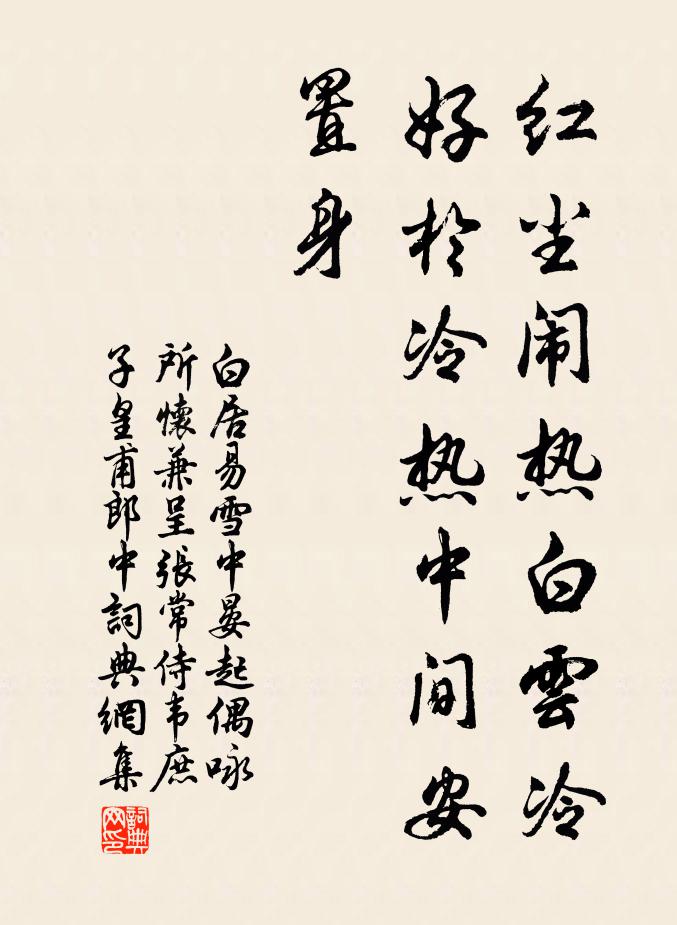 红尘闹热白雲冷
好於冷热中间安
置身
白居易雪中晏起偶咏
所懷兼呈張常侍韦庶
子皇甫郎中詞典網集
詞典
网印